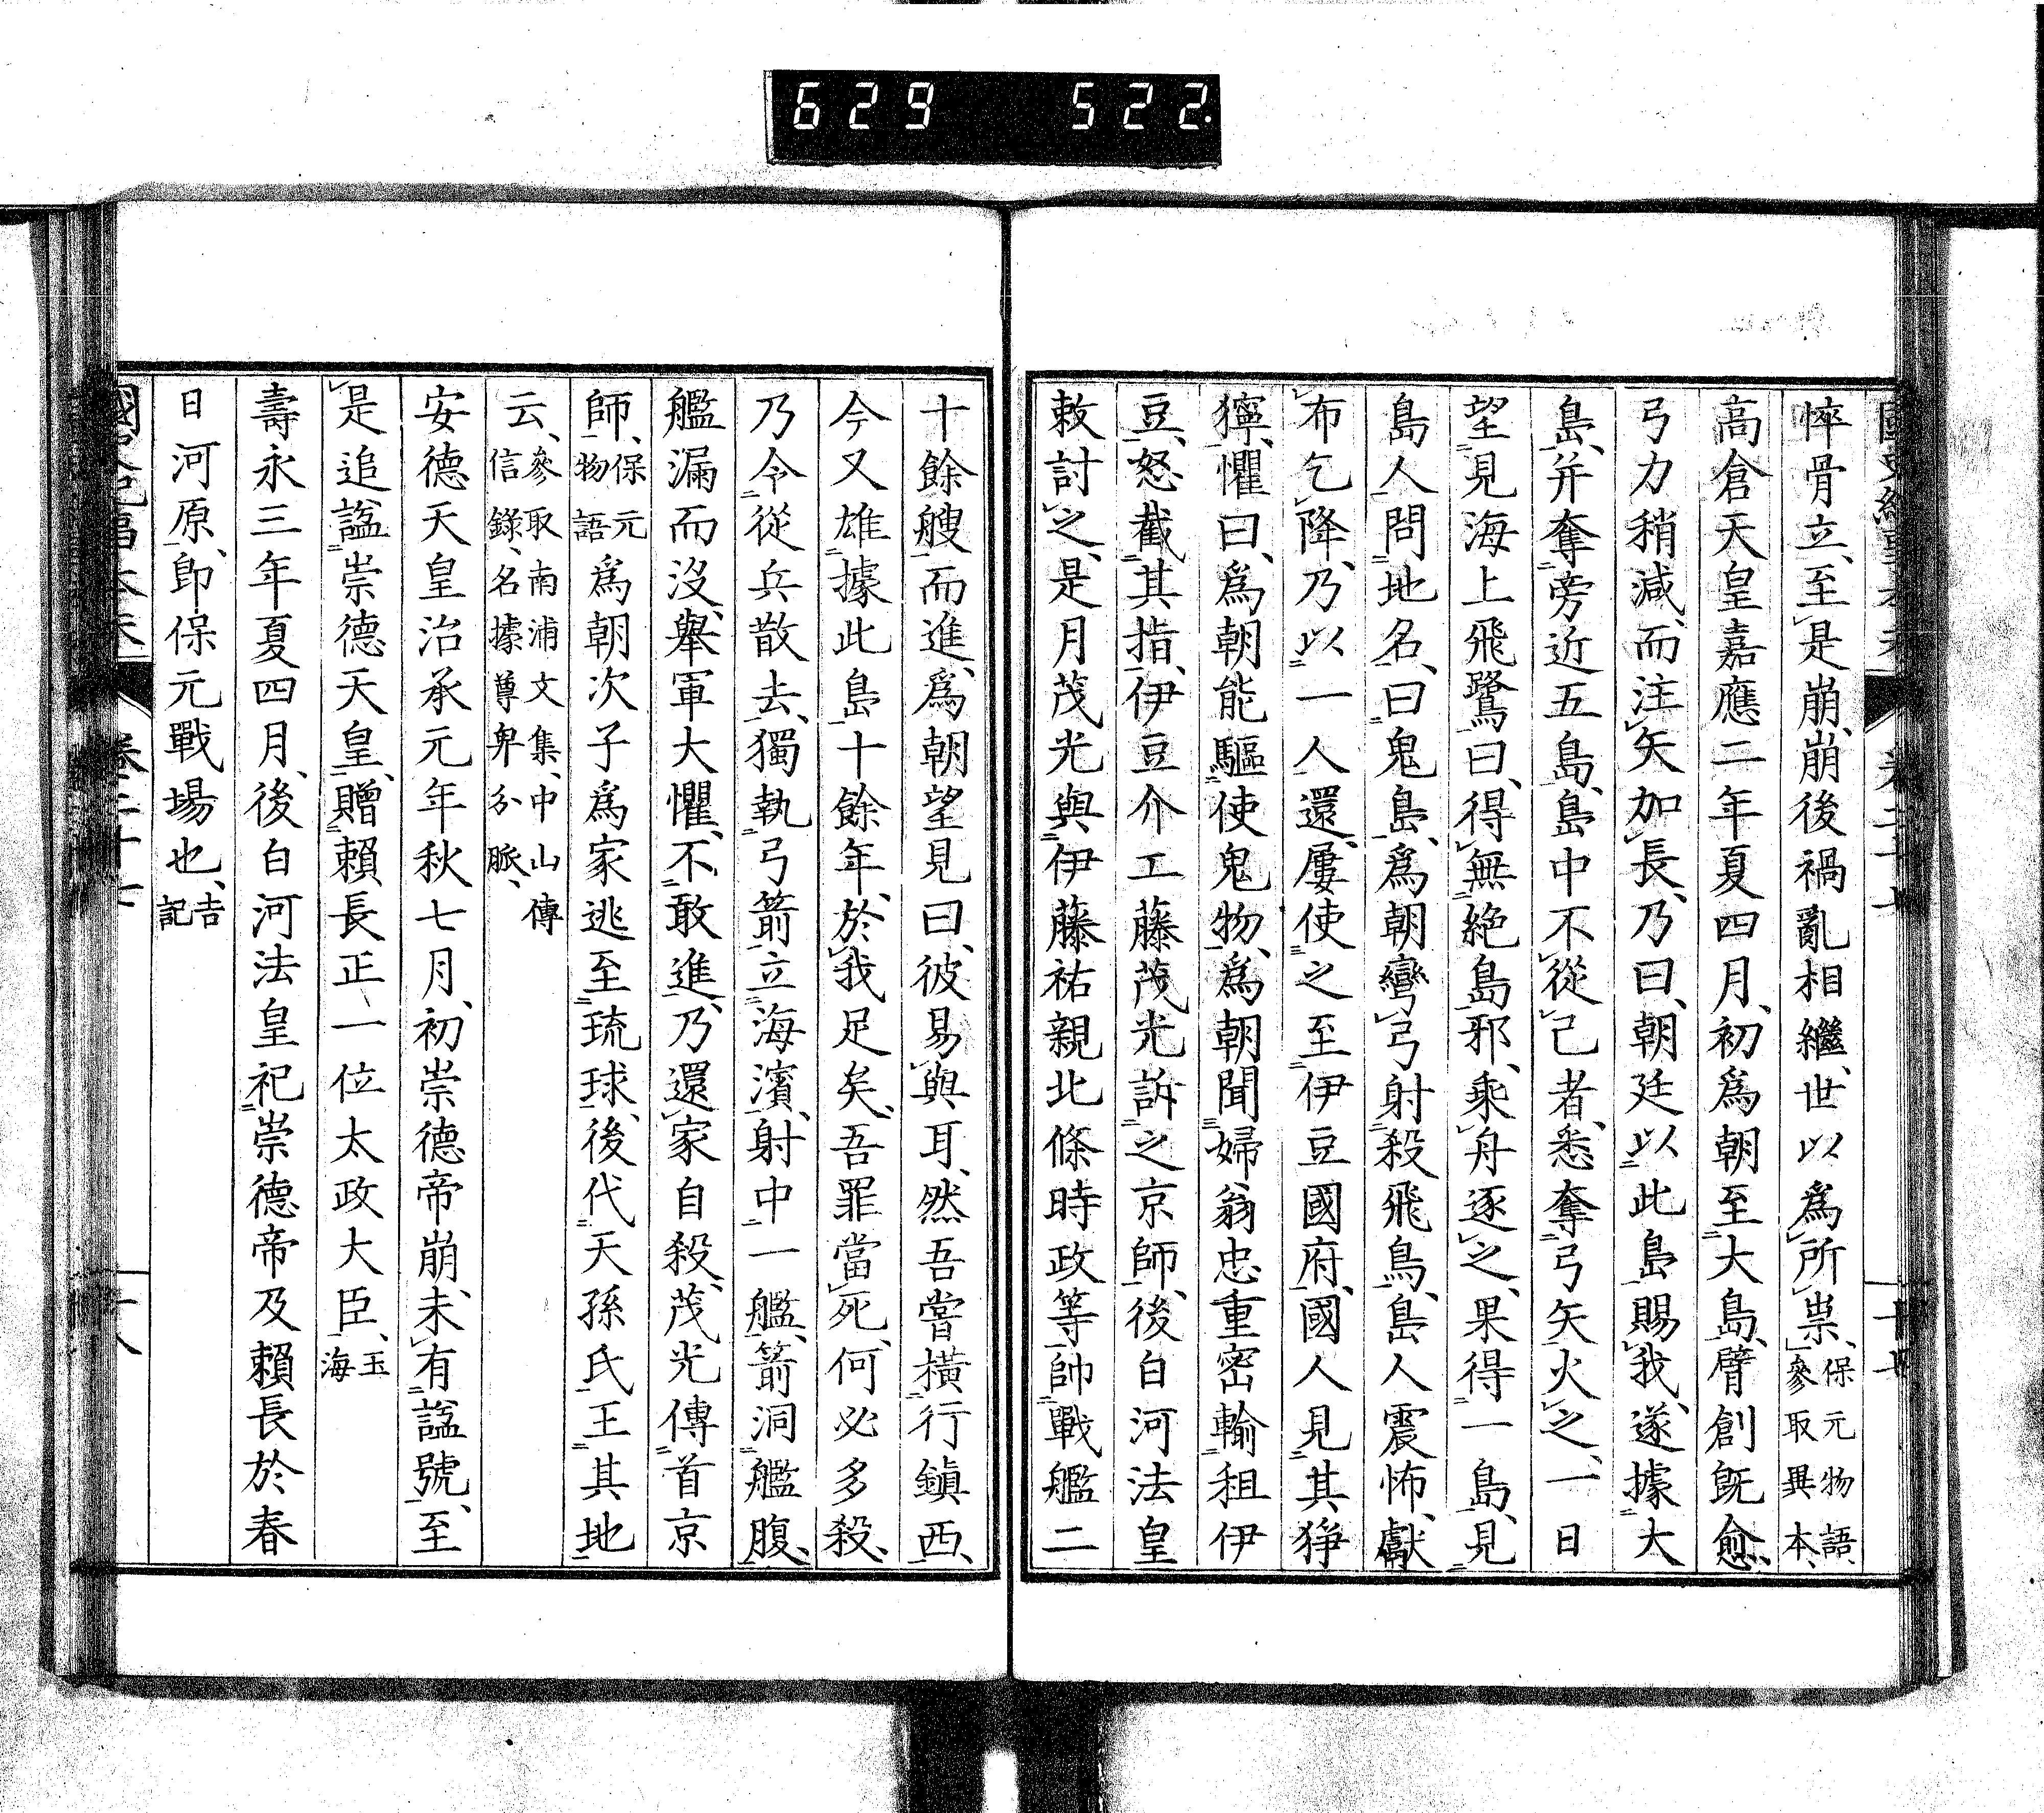 629 522.
悴骨立、至是崩、崩後禍亂相繼、世以爲所祟、保元物語、參取異本、
高倉天皇嘉應二年夏四月、初爲朝至大島、臂創既愈、
弓力稍減、而注矢加長、乃曰、朝廷以此島賜我、遂據大
島、并奪旁近五島、島中不從己者、悉奪弓矢火之、一日
望見海上飛鷺曰、得無絶島邪、乘舟逐之、果得一島、見
島人問地名、曰鬼島、爲朝彎弓射殺飛鳥、島人震怖、獻
布乞降、乃以一人還、屢使之至伊豆國府、國人見其猙
獰、懼曰、爲朝能驅使鬼物、爲朝聞婦翁忠重密輸租伊
豆、怒截其指、伊豆介工藤茂光訴之京師、後白河法皇
敕討之、是月茂光與伊藤祐親北條時政等帥戰艦二
十餘艘而進、爲朝望見曰、彼易與耳、然吾嘗橫行鎭西、
今又雄據此島十餘年、於我足矣、吾罪當死、何必多殺、
乃令從兵散去、獨執弓箭立海濱、射中一艦、箭洞艦腹、
艦漏而沒、舉軍大懼、不敢進、乃還家自殺、茂光傳首京
師、保元物語爲朝次子爲家逃至琉球、後代天孫氏王其地
云、參取南浦文集、中山傳信錄、名據尊卑分脈、
安德天皇治承元年秋七月、初崇德帝崩、未有謚號、至
是追謚崇德天皇、贈賴長正一位太政大臣、玉海
壽永三年夏四月、後白河法皇祀崇德帝及賴長於春
日河原、卽保元戰場也、吉記